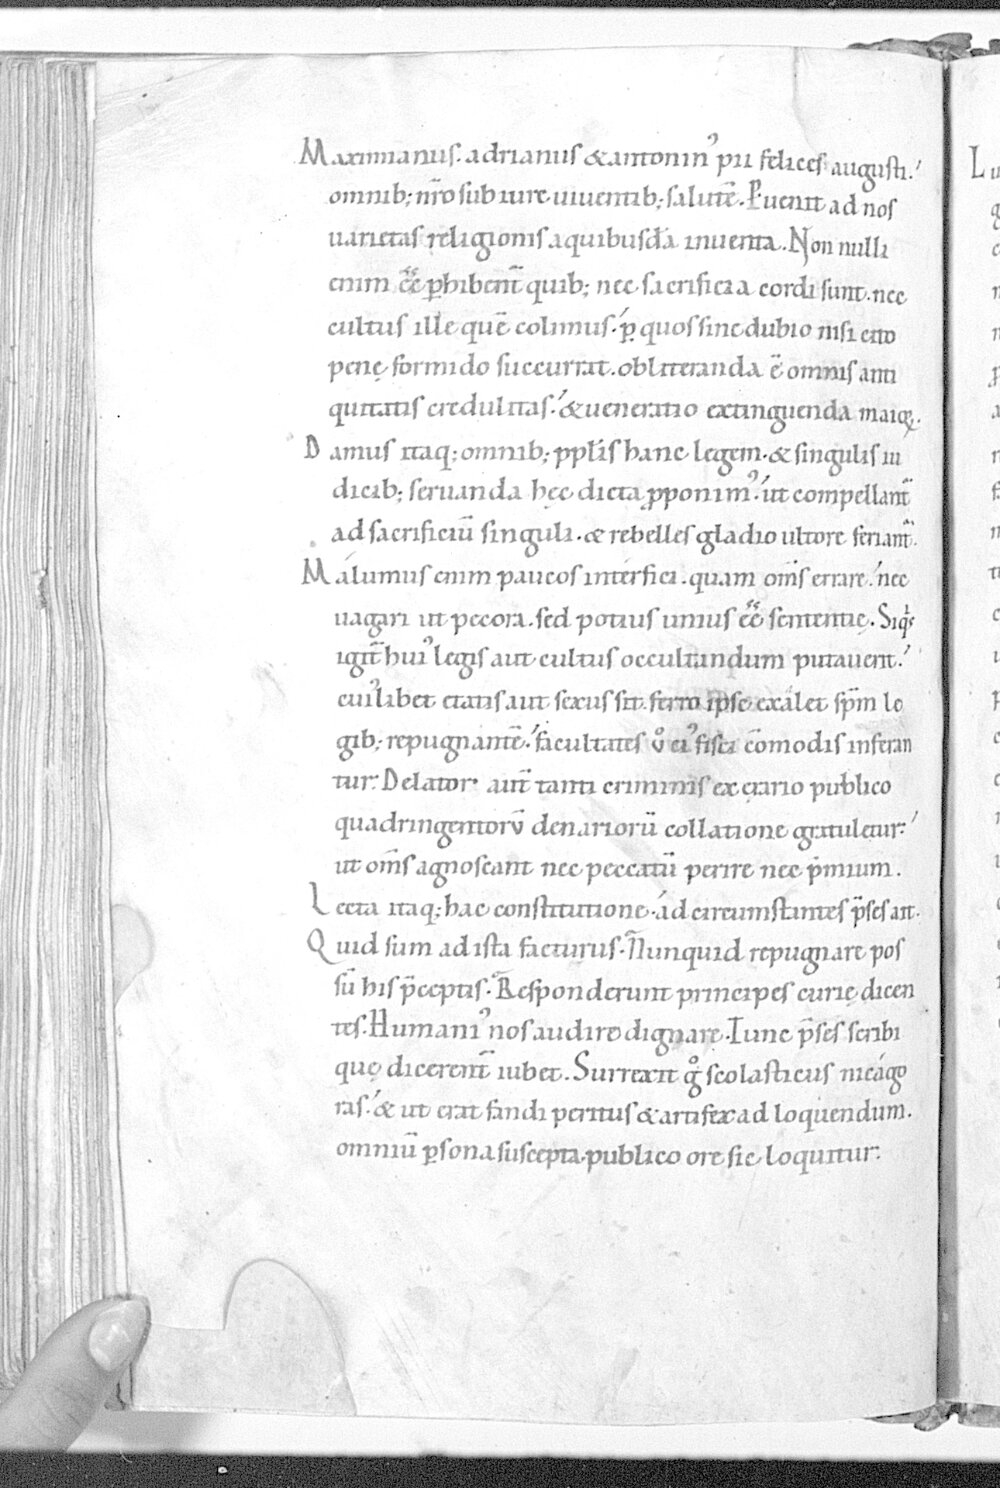 Maximianus. adrianus & antonin᾽ pii felices augusti.
omnib; nr̄o sub iure uiuentib; salutē. Puenit ad nos
uarietas religionis a quibusdā inuenta. Non nulli
enim eē̄ phibent̄ quib; nec sacrificia cordi sunt. nec
cultus ille quē colimus. p quos sine dubio nisi cito
penę formido succurrat. obliteranda ē omnis anti
quitatis credulitas. & ueneratio extinguenda maioꝝ.
Damus itaq; omnib; pplis hanc legem. & singulis iu
dicib; seruanda hęc dicta pponim᾽. ut compellant̄
ad sacrificiū singuli. & rebelles gladio ultore feriant̄.
Malumus enim paucos interfici. quam om̄s errare. nec
uagari ut pecora. sed potius unius eē̄ sententię. Siqs
igit̄ hui᾽ legis aut cultus occultandum putauerit.
cui᾽libet etatis aut sexus sit. ferro ipse exalet sp̄m le
gib; repugnantē. facultates ů ei᾽ fisci cōmodis inferan
tur. Delator aut̄ tanti criminis ex ęrario publico
quadringentorū denariorū collatione gratuletur.
ut om̄s agnoscant nec peccatū perire nec p̄mium.
Lecta itaq; hac constitutione. ad circumstantes p̄ses ait.
Quid sum ad ista facturus. Nunquid repugnare pos
sū his p̄ceptis. Responderunt principes curię dicen
tes. Humani᾽ nos audire dignare. Tunc p̄ses scribi
quę dicerent̄ iubet. Surrexit g̊ scolasticus nicago
ras. & ut erat fandi peritus & artifex ad loquendum.
omniū psona suscepta. publico ore sic loquitur.